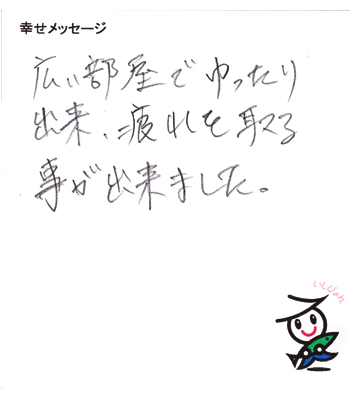 幸せメッセージ
広い部屋でゆったり
出来、疲れを取る
事が出来ました。
いしじょん